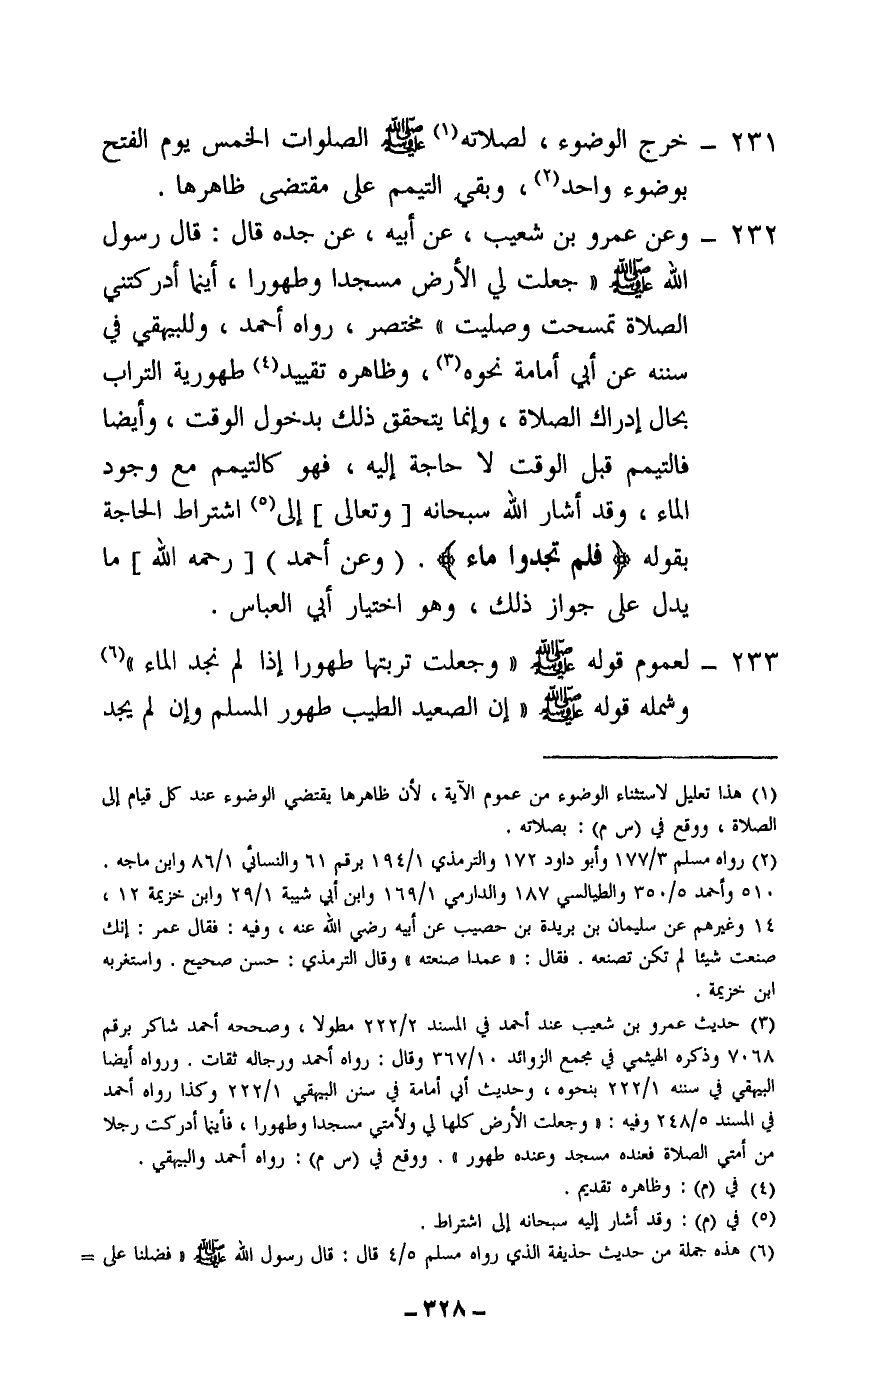 ٢٣١ – خرج الوضوء ، لصلاته(١) ﷺ الصلوات الخمس يوم الفتح
بوضوء واحد(٢) ، وبقي التيمم على مقتضى ظاهرها .
٢٣٢ – وعن عمرو بن شعيب ، عن أبيه ، عن جده قال : قال رسول
الله ﷺ « جعلت لي الأرض مسجدا وطهورا ، أينما أدركتني
الصلاة تمسحت وصليت » مختصر ، رواه أحمد ، وللبيهقي في
سننه عن أبي أمامة نحوه(٣) ، وظاهره تقييد(٤) طهورية التراب
بحال إدراك الصلاة ، وإنما يتحقق ذلك بدخول الوقت ، وأيضا
فالتيمم قبل الوقت لا حاجة إليه ، فهو كالتيمم مع وجود
الماء ، وقد أشار الله سبحانه [ وتعالى ] إلى(٥) اشتراط الحاجة
بقوله ﴿ فلم تجدوا ماء ﴾ . ( وعن أحمد ) [ رحمه الله ] ما
يدل على جواز ذلك ، وهو اختيار أبي العباس .
٢٣٣ – لعموم قوله ﷺ « وجعلت تربتها طهورا إذا لم نجد الماء »(٦)
وشمله قوله ﷺ « إن الصعيد الطيب طهور المسلم وإن لم يجد
(١) هذا تعليل لاستثناء الوضوء من عموم الآية ، لأن ظاهرها يقتضي الوضوء عند كل قيام إلى
الصلاة ، ووقع في (س م) : بصلاته .
(٢) رواه مسلم ١٧٧/٣ وأبو داود ١٧٢ والترمذي ١٩٤/١ برقم ٦١ والنسائي ٨٦/١ وابن ماجه .
٥١٠ وأحمد ٣٥٠/٥ والطيالسي ١٨٧ والدارمي ١٦٩/١ وابن أبي شيبة ٢٩/١ وابن خزيمة ١٢ ،
١٤ وغيرهم عن سليمان بن بريدة بن حصيب عن أبيه رضي الله عنه ، وفيه : فقال عمر : إنك
صنعت شيئا لم تكن تصنعه . فقال : « عمدا صنعته » وقال الترمذي : حسن صحيح . واستغربه
ابن خزيمة .
(٣) حديث عمرو بن شعيب عند أحمد في المسند ٢٢٢/٢ مطولا ، وصححه أحمد شاكر برقم
٧٠٦٨ وذكره الهيثمي في مجمع الزوائد ٣٦٧/١٠ وقال : رواه أحمد ورجاله ثقات . ورواه أيضا
البيهقي في سننه ٢٢٢/١ بنحوه ، وحديث أبي أمامة في سنن البيهقي ٢٢٢/١ وكذا رواه أحمد
في المسند ٢٤٨/٥ وفيه : « وجعلت الأرض كلها لي ولأمتي مسجدا وطهورا ، فأينما أدركت رجلا
من أمتي الصلاة فعنده مسجد وعنده طهور » . ووقع في (س م) : رواه أحمد والبيهقي .
(٤) في (م) : وظاهره تقديم .
(٥) في (م) : وقد أشار إليه سبحانه إلى اشتراط .
(٦) هذه جملة من حديث حذيفة الذي رواه مسلم ٤/٥ قال : قال رسول الله ﷺ « فضلنا على =
– ٣٢٨ –